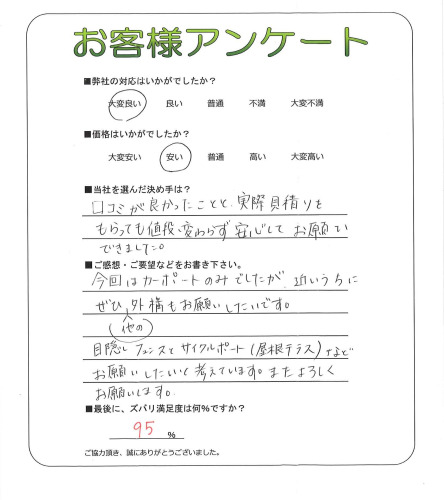 お客様アンケート
■弊社の対応はいかがでしたか？
大変良い 良い 普通 不満 大変不満
■価格はいかがでしたか？
大変安い 安い 普通 高い 大変高い
■当社を選んだ決め手は？
口コミが良かったことと、実際見積りを
もらっても値段変わらず安心してお願い
できました。
■ご感想・ご要望などをお書き下さい。
今回はカーポートのみでしたが、近いうちに
ぜひ、外構もお願いしたいです。
(他の)
目隠しフェンスとサイクルポート(屋根テラス)などで
お願いしたいと考えています。またよろしく
お願いします。
■最後に、ズバリ満足度は何%ですか？
95 %
ご協力頂き、誠にありがとうございました。